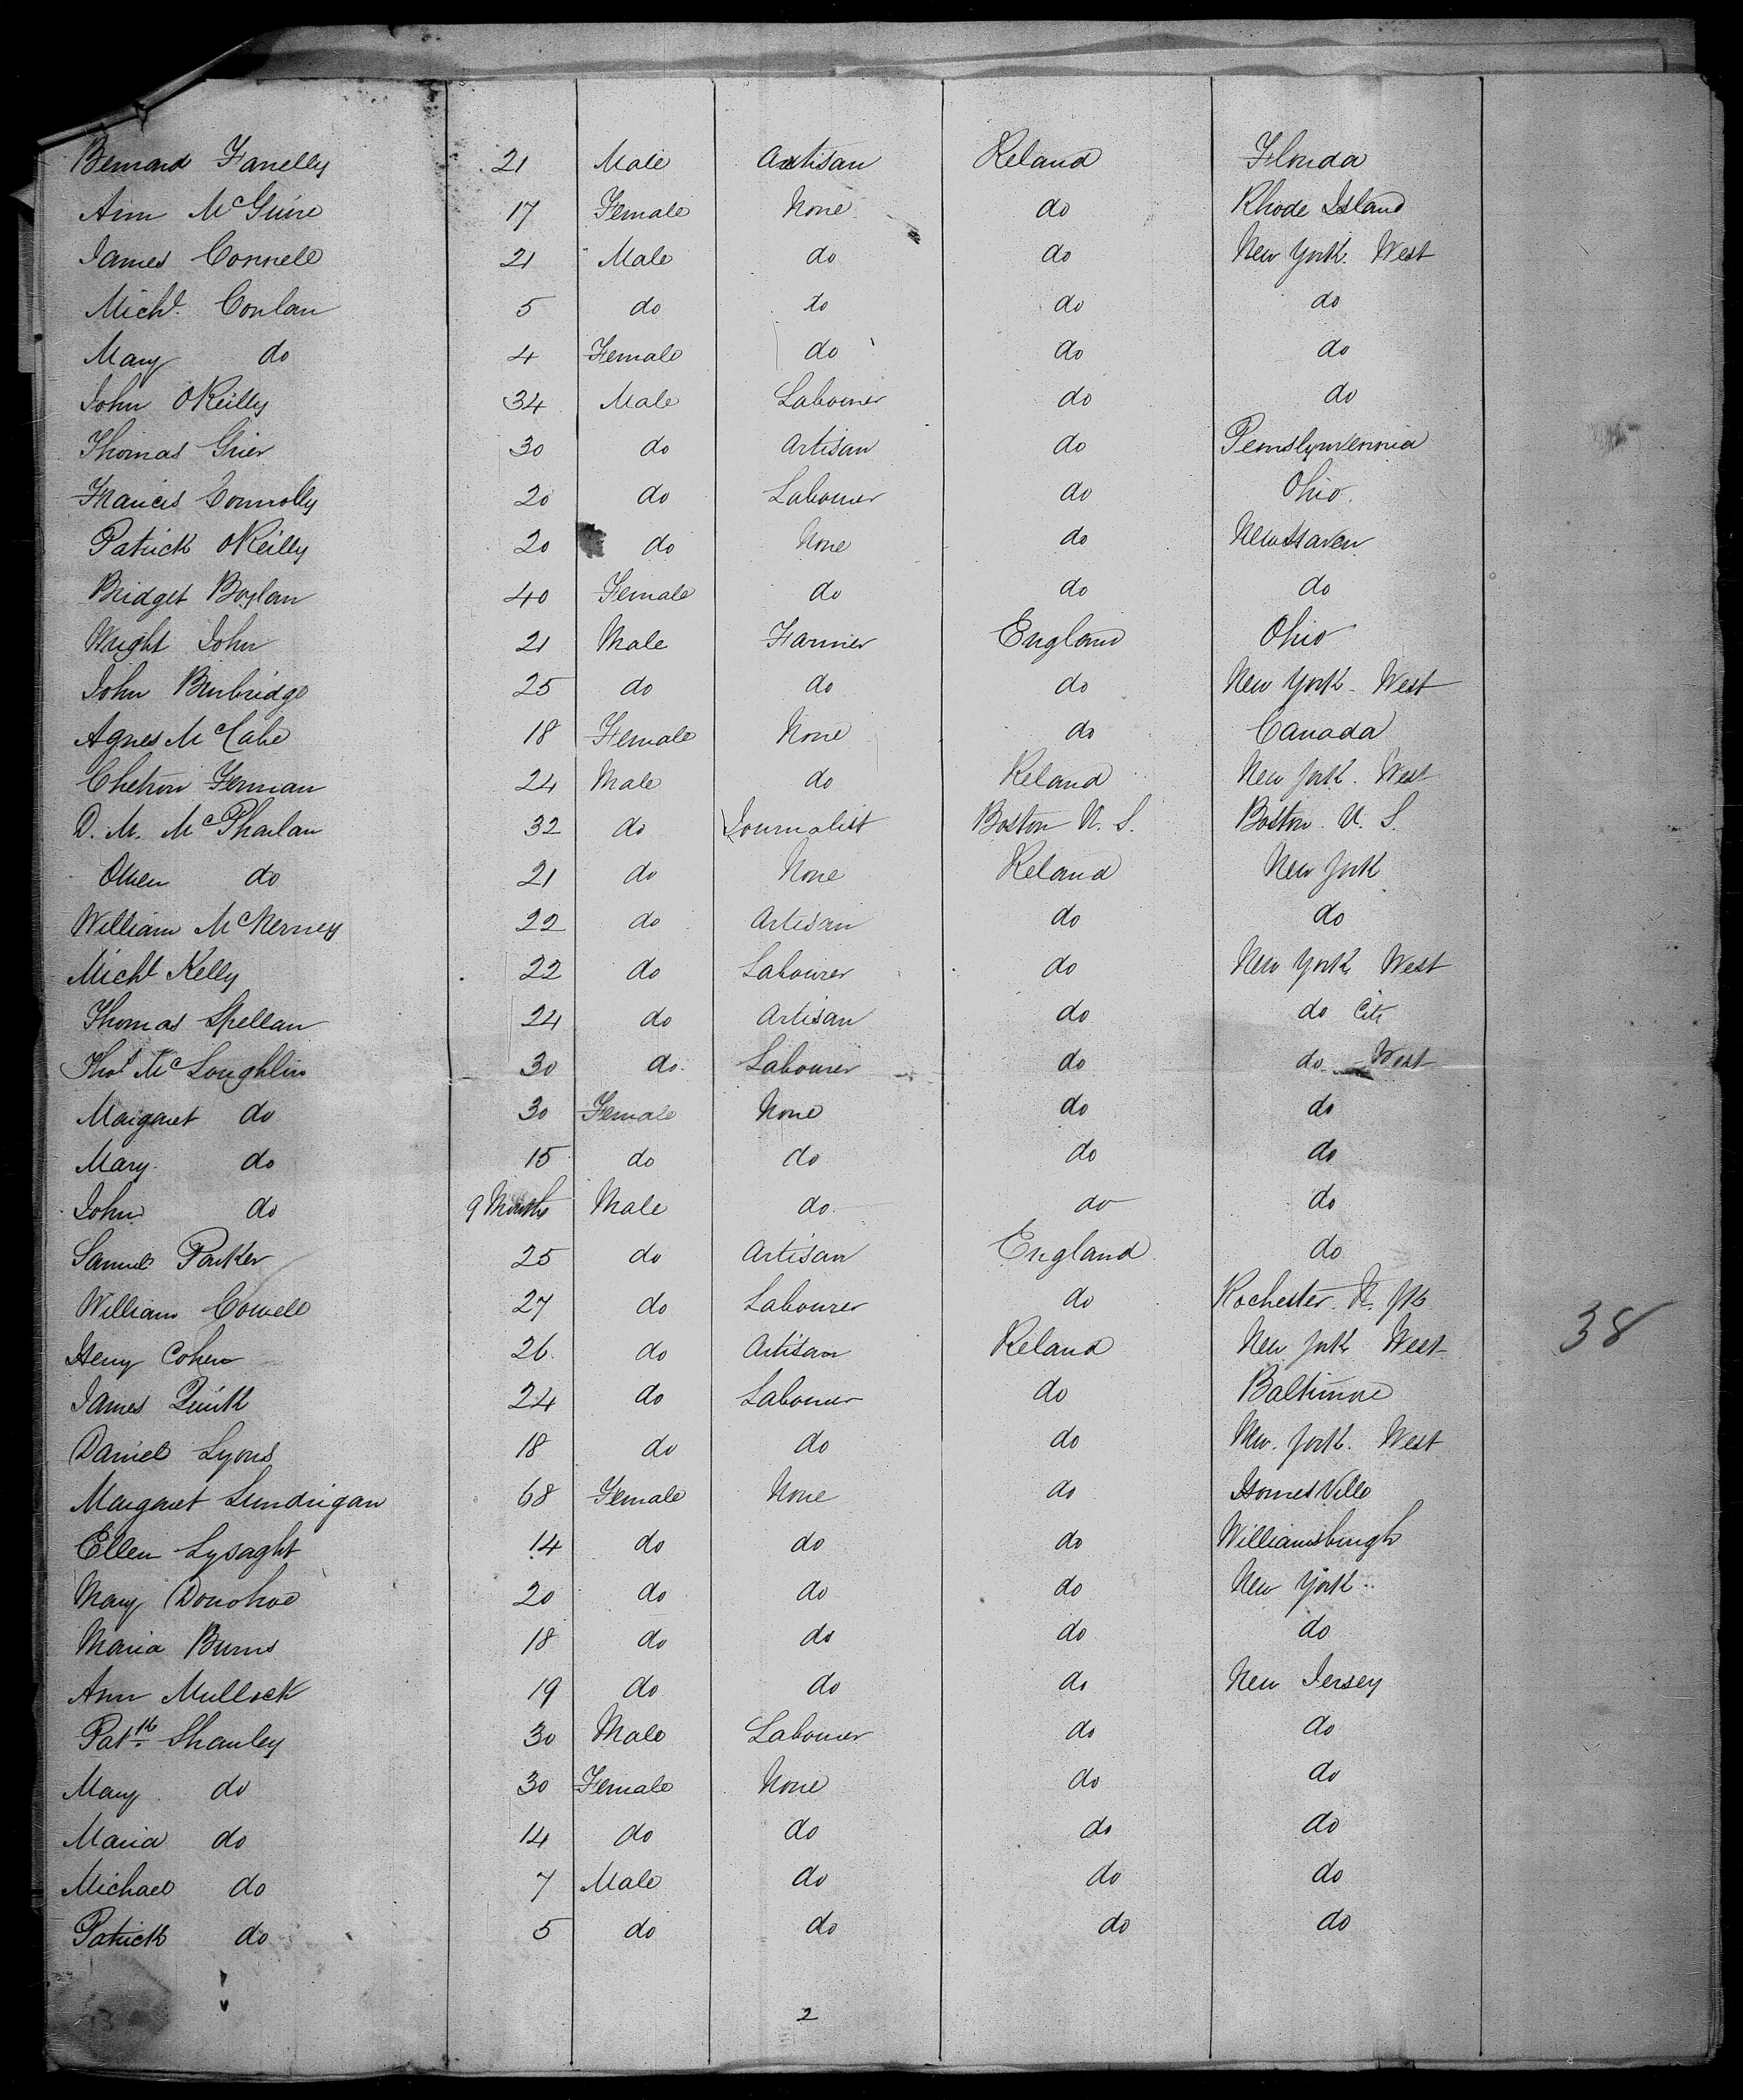 Bernard Farrelly 21 Male Artisan Ireland Florida
Ann McGuire 17 Female None do Rhode Island
James Connell 21 Male do do New York West
Michl. Conlan 5 do do do do
Mary do 4 Female do do do
John OReilly 34 Male Labourer do do
Thomas Grier 30 do Artisan do Pennslynvennia
Francis Connolly 20 do Labourer do Ohio
Patrick OReilly 20 do None do New Haven
Bridget Boylan 40 Female do do do
Wright John 21 Male Farmer England Ohio
John Binbridge 25 do do do New York West
Agnes McCabe 18 Female None do Canada
24 Male do Ireland New York West
D. M. McPharlan 32 do Journalist Boston U.S. Boston U.S.
Owen do 21 do None Ireland New York
William McNerney 22 do Artisan do do
Michl Kelly 22 do Labourer do New York West
Thomas Spellan 24 do Artisan do do City
Thos McLoughlin 30 do Labourer do do West
Margaret do 30 Female None do do
Mary do 15 do do do do
John do 9 Months Male do do do
Samuel Parker 25 do Artisan England do
William Cowell 27 do Labourer do Rochester N. Yk
Henry Cohen 26 do Artisan Ireland New York West 38
James 24 do Labourer do Baltimore
Daniel Lyons 18 do do do New York West
Margaret Lundrigan 68 Female None do HornesVille
Ellen Lysaght 14 do do do Williamsburgh
Mary Donohoe 20 do do do New York
Maria Burns 18 do do do do
Ann Mullock 19 do do do New Jersey
Patk. Shanley 30 Male Labourer do do
Mary do 30 Female None do do
Maria do 14 do do do do
Michael do 7 Male do do do
Patrick do 5 do do do do
2